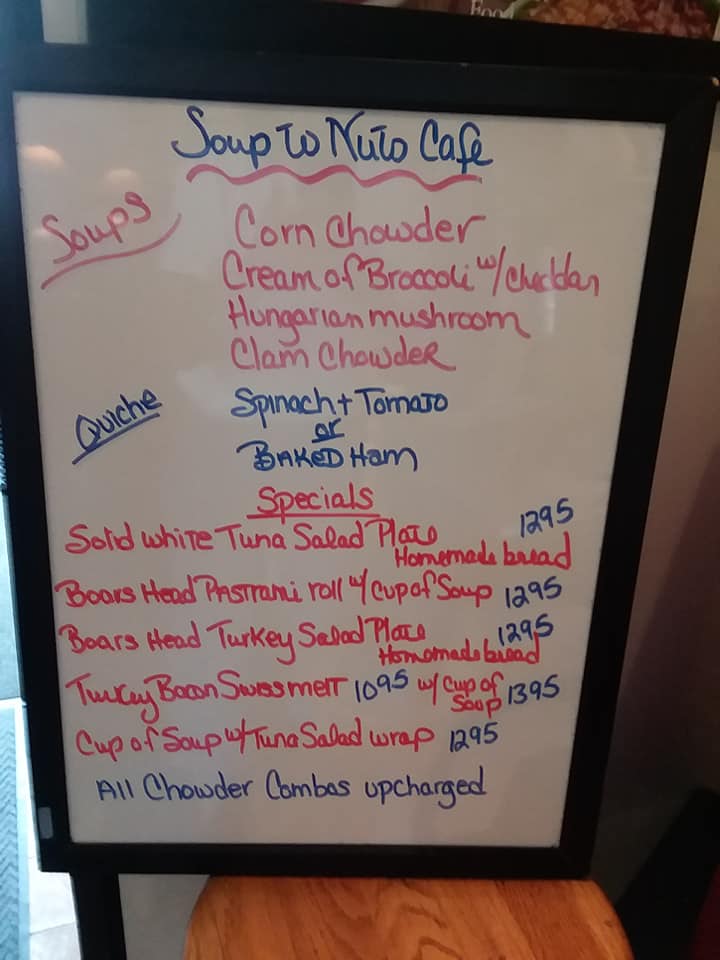 Food
Soup to Nuts Cafe
Soups
Corn Chowder
Cream of Broccoli w/ cheddar
Hungarian mushroom
Clam Chowder
Quiche
Spinach + Tomato
or
Baked Ham
Specials
Solid white Tuna Salad Plate 1295
Homemade bread
Boars Head Pastrami roll w/ cup of Soup 1295
Boars Head Turkey Salad Plate 1295
Homemade bread
Turkey Bacon Swiss melt 1095 w/ cup of Soup 1395
Cup of Soup w/ Tuna Salad wrap 1295
All Chowder Combos upcharged